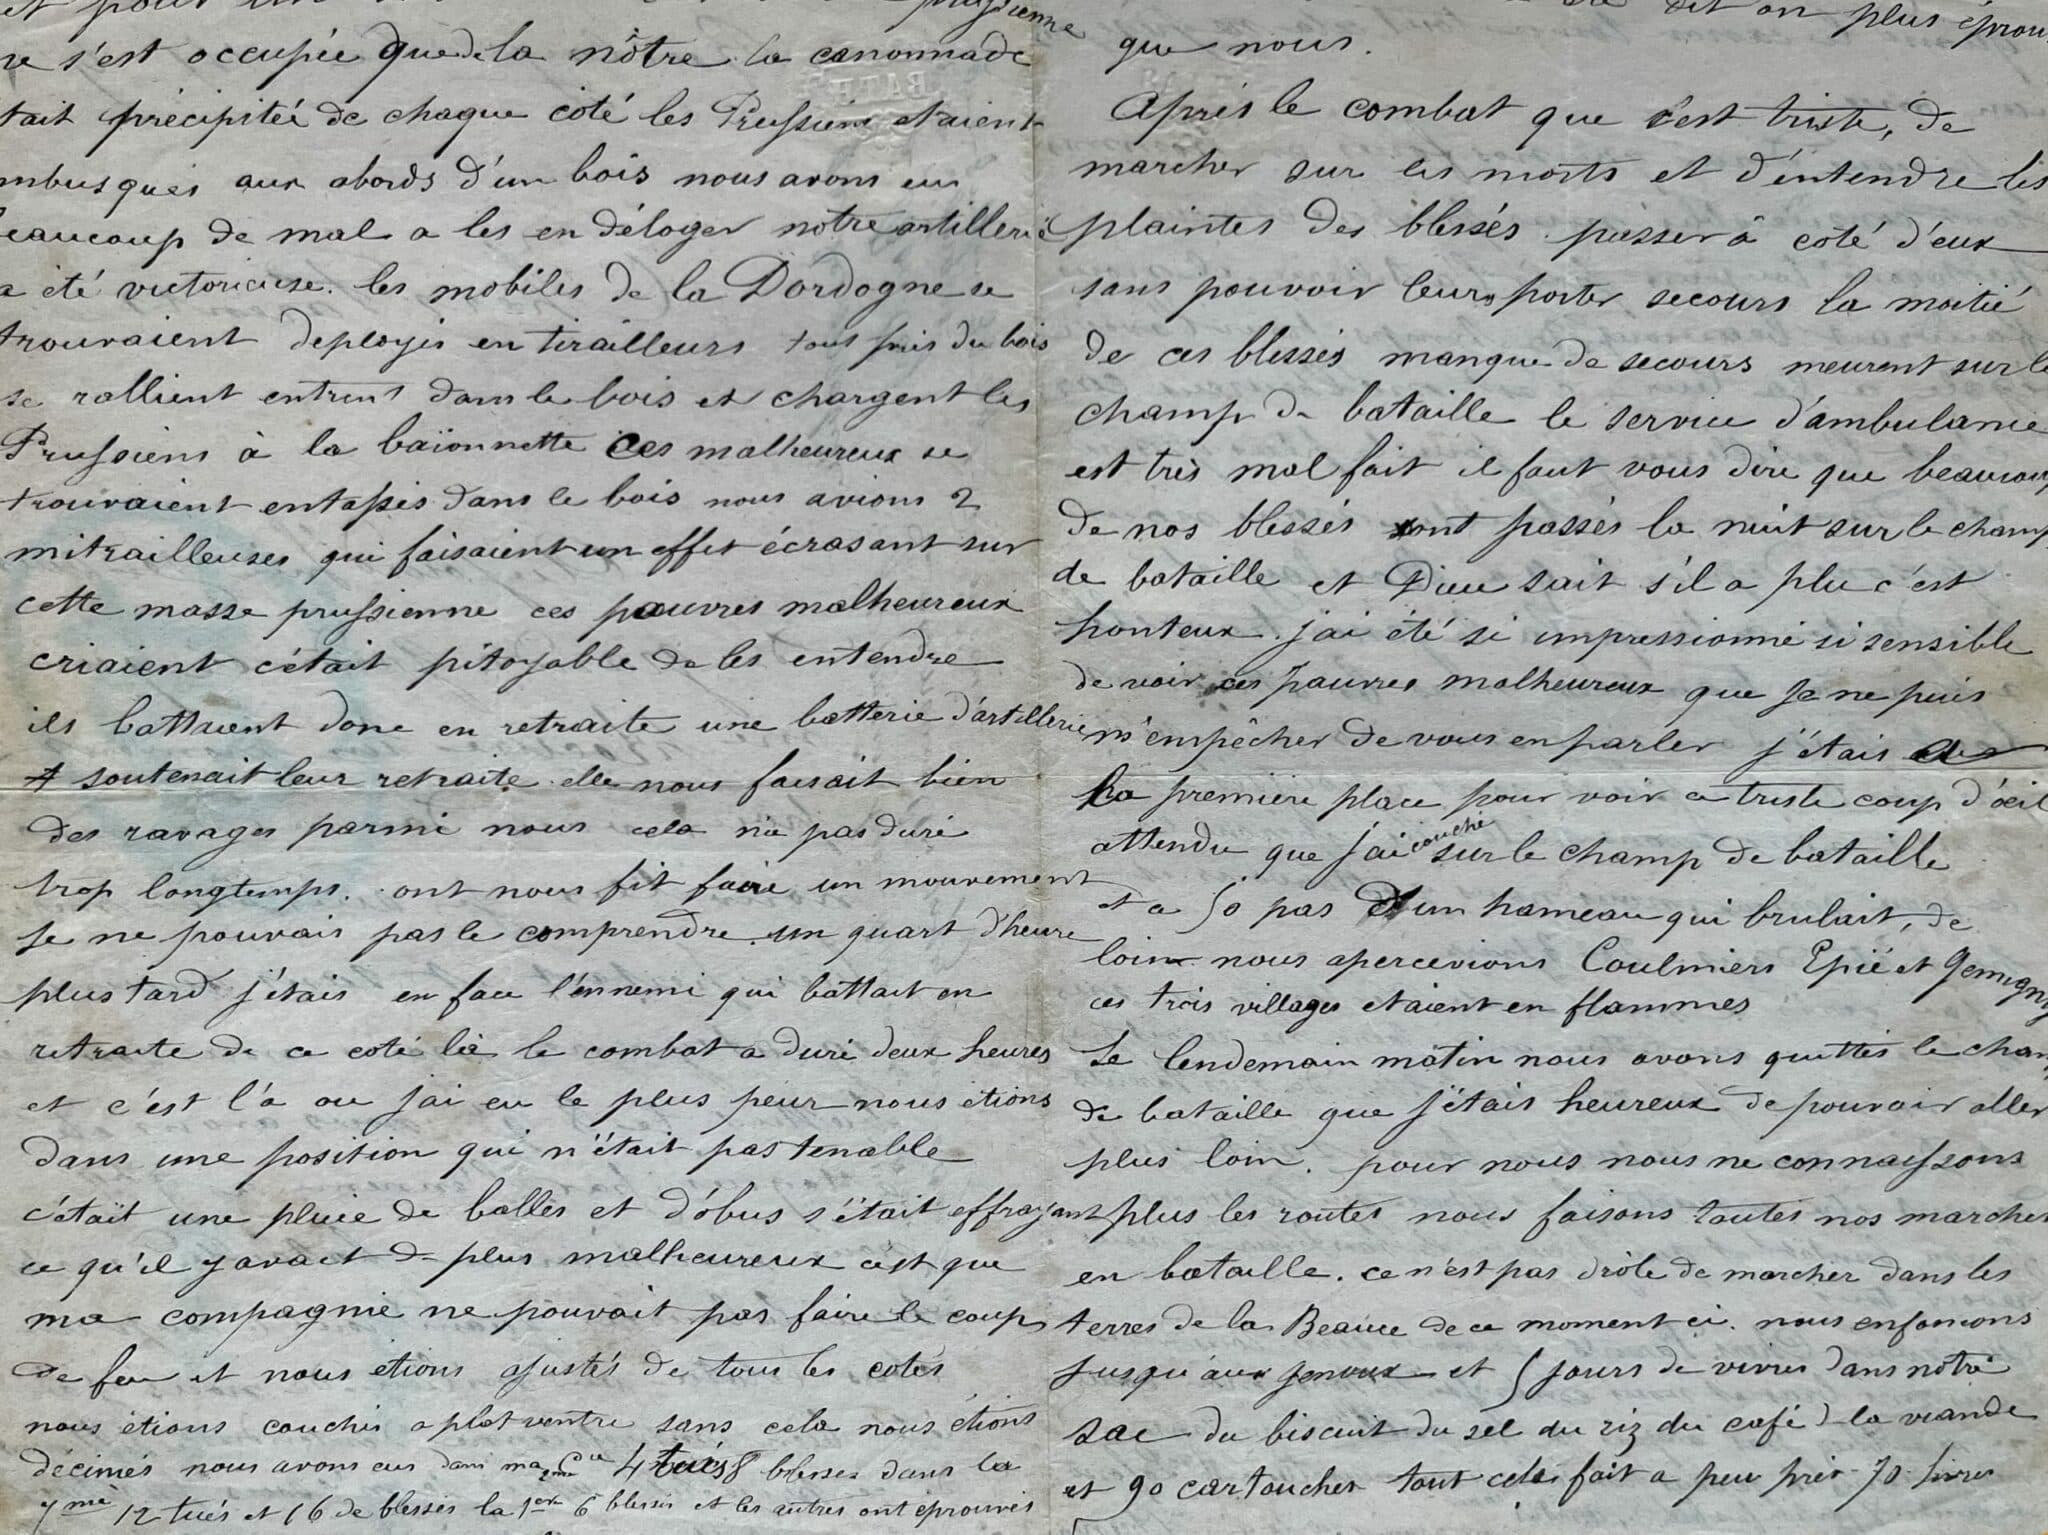 et pour
prussienne
ne s'est occupée que de la nôtre la canonnade
tait précipitée de chaque côté les Prussiens etaient
mbusqués aux abords d'un bois nous avons eu
beaucoup de mal a les en déloger notre artillerie
a été victorieuse. les mobiles de la Dordogne se
trouvaient deployés en tirailleurs tous près du bois
se rallient entrent dans le bois et chargent les
Prussiens à la baïonnette ces malheureux se
trouvaient entassés dans le bois nous avions 2
mitrailleuses qui faisaient un effet écrasant sur
cette masse prussienne ces pauvres malheureux
criaient c'était pitoyable de les entendre
ils battaient donc en retraite une batterie d'artillerie
soutenait leur retraite elle nous faisait bien
des ravages parmi nous cela n'a pas duré
trop longtemps. ont nous fit faire un mouvement
je ne pouvais pas le comprendre. un quart d'heure
plus tard j'étais en face l'énnemi qui battait en
retraite de ce coté là le combat a duré deux heures
et c'est l'à ou j'ai eu le plus peur nous étions
dans une position qui n'était pas tenable
c'était une pluie de balles et d'óbus s'était effrayant
ce qu'il y avait de plus malheureux c'est que
ma compagnie ne pouvait pas faire le coup
de feu et nous étions ajustés de tous les cotés
nous étions couchés a plat ventre sans cela nous étions
décimés nous avons eus dans ma 2me Cie 4 tués 8 blesses dans la
7me 12 tués et 16 de blessés la 1ere 6 blessés et les autres ont éprouvés
dit on plus éprou
que nous.
Après le combat que c'est triste, de
marcher sur les morts et d'éntendre les
plaintes des blessés passer à coté d'eux
sans pouvoir leurs porter secours la moitié
de ces blessés manque de secours meurent sur le
champ de bataille le service d'ambulance
est très mal fait il faut vous dire que beaucoup
de nos blessés ont passés la nuit sur le champ
de bataille et Dieu sait s'il a plu c'est
honteux. j'ai été si impressionné si sensible
de voir ces pauvres malheureux que je ne puis
m'empêcher de vous en parler j'étais a
la première place pour voir ce triste coup d'oeil
attendu que j'ai couché sur le champ de bataille
et a 50 pas d'un hameau qui brulait, de
loin nous apercevions Coulmiers Epié et Gemigny
ces trois villages etaient en flammes
Le lendemain matin nous avons quittés le cham
de bataille que j'étais heureux de pouvoir aller
plus loin. pour nous nous ne connaissons
plus les routes nous faisons toutes nos marches
en bataille. ce n'est pas drôle de marcher dans les
terres de la Beauce de ce moment ci. nous enfoncions
jusqu'aux genoux et 5 jours de vivres dans nôtre
sac du biscuit du sel du riz du café de la viande
et 90 cartouches tout cela fait a peu près 70 livres